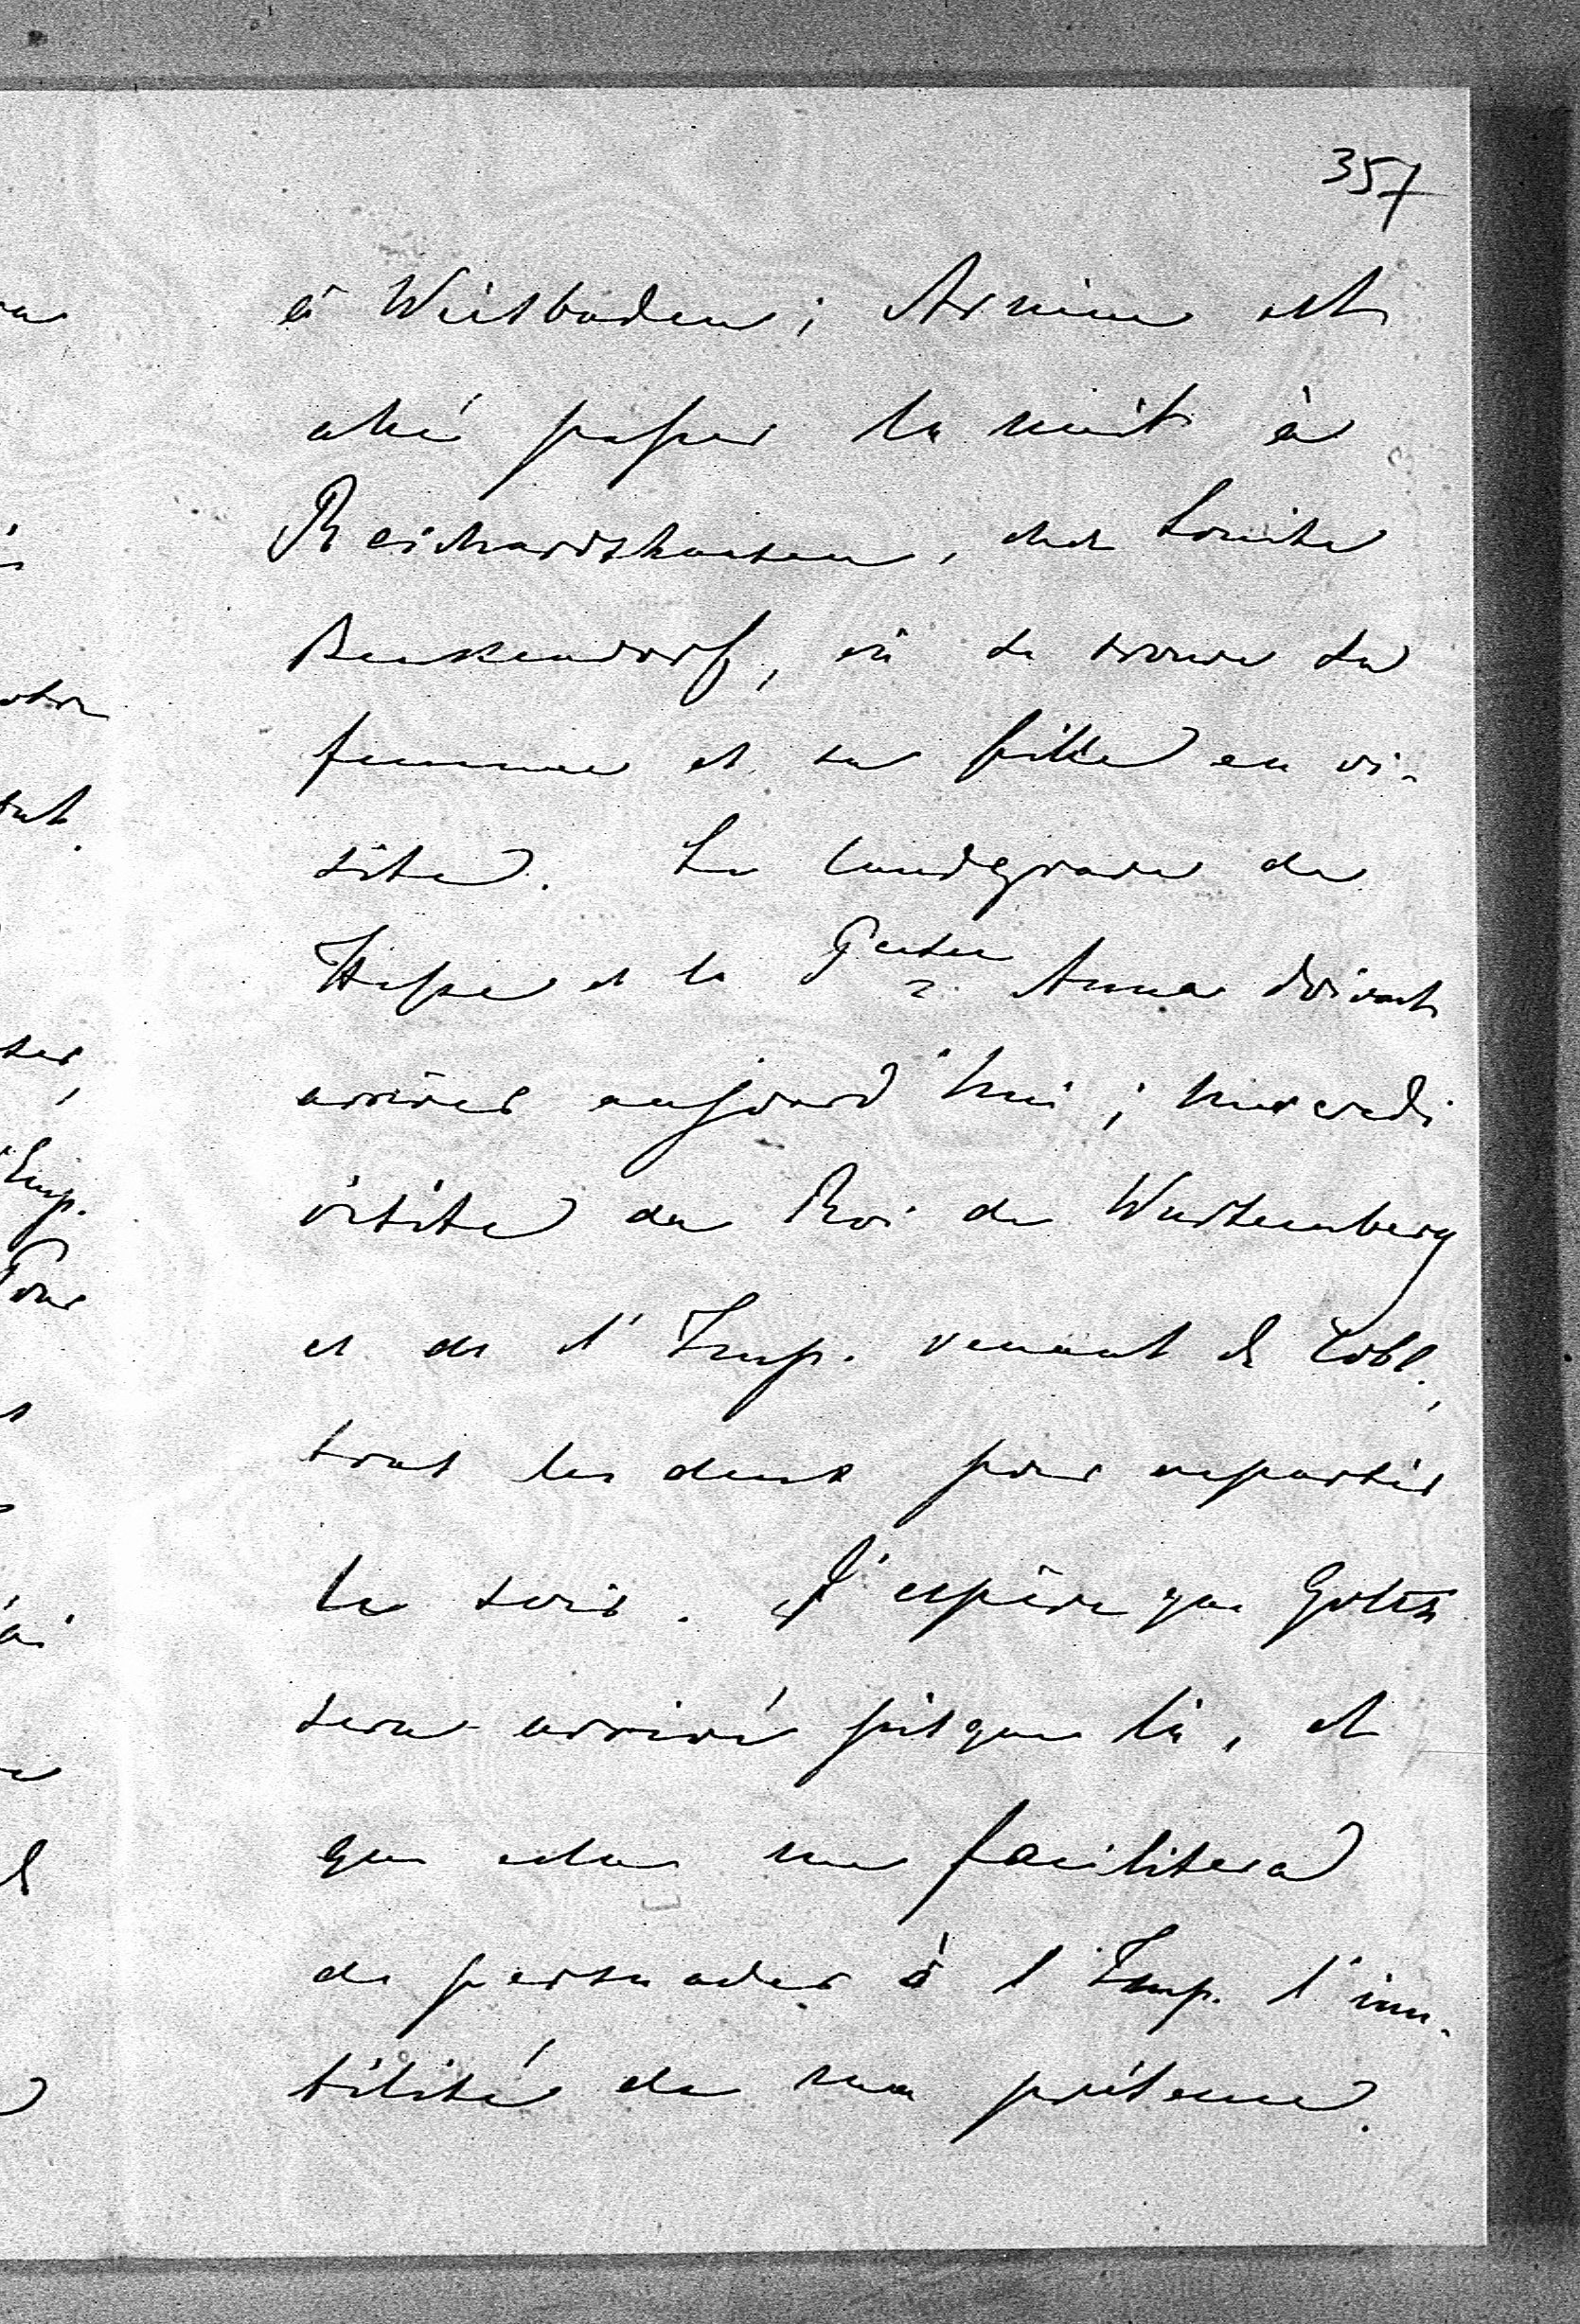 357
à Wiesbaden; Arnim est
allé passer la nuit à
Reichardshausen, chez Louise
Benkendorf, où se trouve sa
femme et sa fille en vi-
site. Le landgrave de
Hesse et la Pcesse Anna doivent
arriver aujourd'hui; mercredi
visite du Roi de Wurtemberg
et de l'Imp. venant de Cobl.,
tous les deux pour repartir
le soir. J'espère que Goltz
sera arrivé jusque là, et
que cela me facilitera
de persuader à l'Imp. l'inu-
tilité de ma présence.